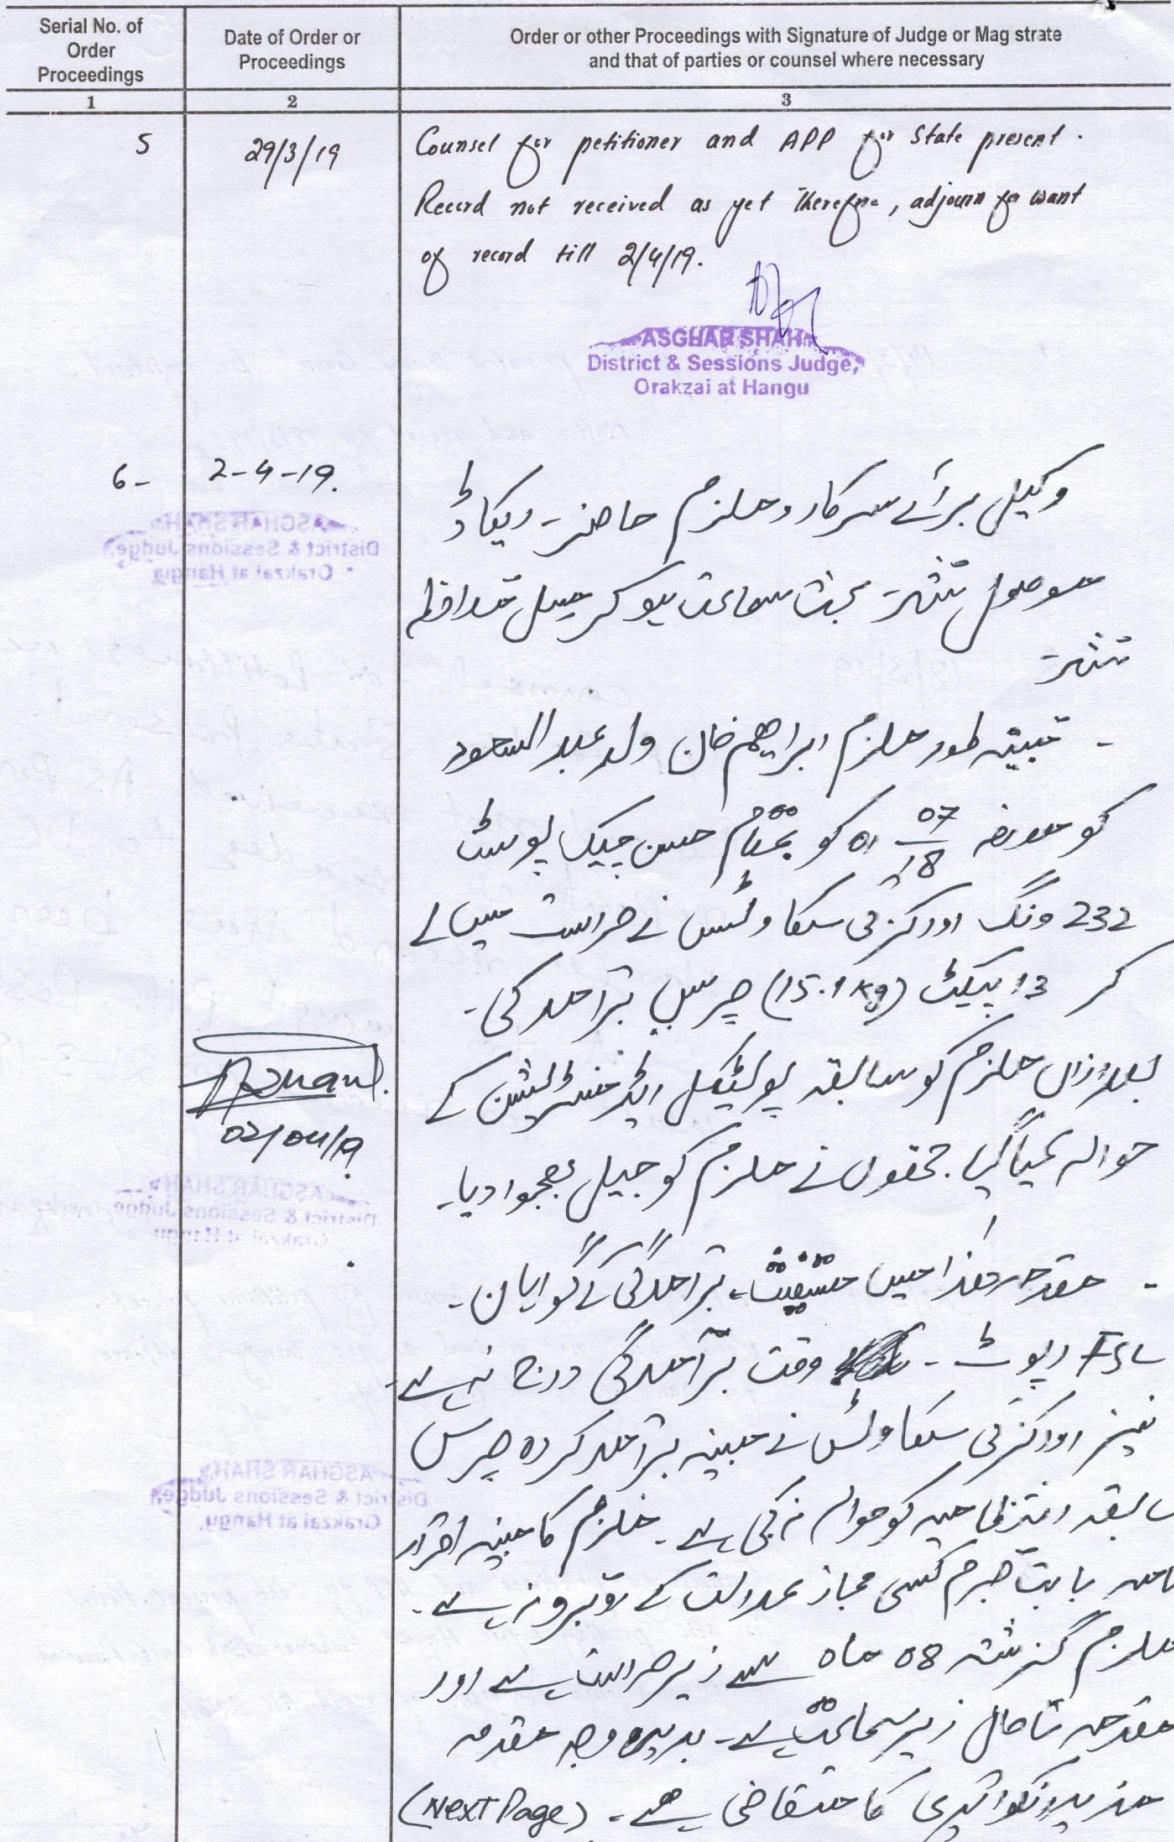 Serial No. of
Order
Proceedings
Date of Order or
Proceedings
Order or other Proceedings with Signature of Judge or Mag strate
and that of parties or counsel where necessary
1
2
3
5
29/3/19
Counsel for petitioner and APP for State present.
Record not received as yet Therefore, adjourn for want
of record till 2/4/19.
ASGHAR SHAH
District & Sessions Judge,
Orakzai at Hangu
6-
2-4-19.
وکیل برائے سرکار و ملزم حاضر۔ ریکارڈ
موصول شد۔ بحث سماعت ہوکر مسل
شد۔
ملزم ابراھیم خان ولد عبد السعود
کو مورخہ 01 07/18 کو بمقام حسن چیک پوسٹ
232 ونگ اورکزئی سکاوٹس نے حراست میں لے
کر 13 پیکٹ (15.1 kg) چرس برآمد کی۔
بعد ازاں ملزم کو سابقہ پولیٹیکل ایڈمنسٹریشن کے
حوالہ کیا گیا۔ جنھوں نے ملزم کو جیل بھجوا دیا۔
02/04/19
۔ مقدمہ ھذا میں تفتیش، برآمدگی کے گواہان۔
FSL رپوٹ۔ وقت برآمدگی درج نہ ہے۔
نیز اورکزئی سکاوٹس نے مبینہ برآمد کردہ چرس
سابقہ انتظامیہ کو حوالہ نہ کی ہے۔ ملزم کا مبینہ اقرار
نامہ بابت جرم کسی مجاز عدالت کے روبرو نہ ہے۔
ملزم گزشتہ 08 ماہ سے زیر حراست ہے اور
مقدمہ تاحال زیر سماعت ہے۔ بدیں وجہ مقدمہ
مزید انکوائری کا متقاضی ہے۔ (Next Page)